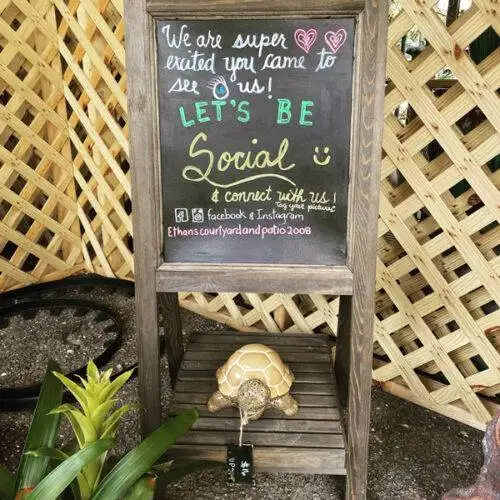 We are super
exited you came to
see us!
LET'S BE
Social
& connect with us!
Tag your pictures
facebook & Instagram
Ethanscourtyardandpatio2008